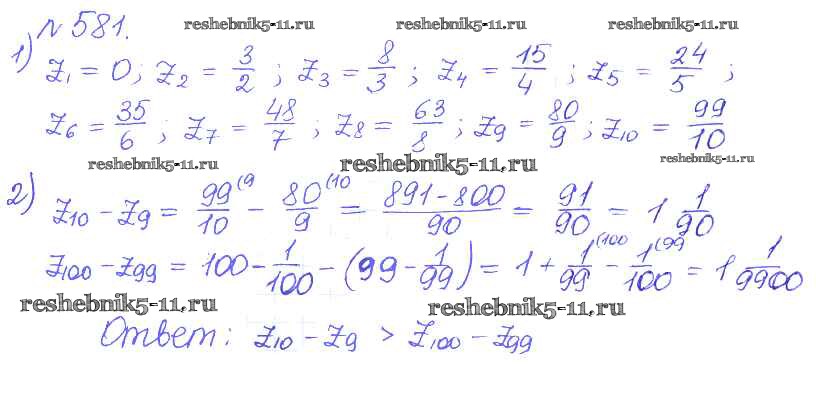 № 581. reshebnik5-11.ru reshebnik5-11.ru reshebnik5-11.ru
1) z₁ = 0; z₂ = 3/2; z₃ = 8/3; z₄ = 15/4; z₅ = 24/5;
z₆ = 35/6; z₇ = 48/7; z₈ = 63/8; z₉ = 80/9; z₁₀ = 99/10
reshebnik5-11.ru reshebnik5-11.ru reshebnik5-11.ru
2) z₁₀ - z₉ = 99/10 (9 - 80/9 (10 = 891-800/90 = 91/90 = 1 1/90
z₁₀₀ - z₉₉ = 100 - 1/100 - (99 - 1/99) = 1 + 1/99 (100 - 1/100 (99 = 1 1/9900
reshebnik5-11.ru reshebnik5-11.ru
Ответ: z₁₀ - z₉ > z₁₀₀ - z₉₉